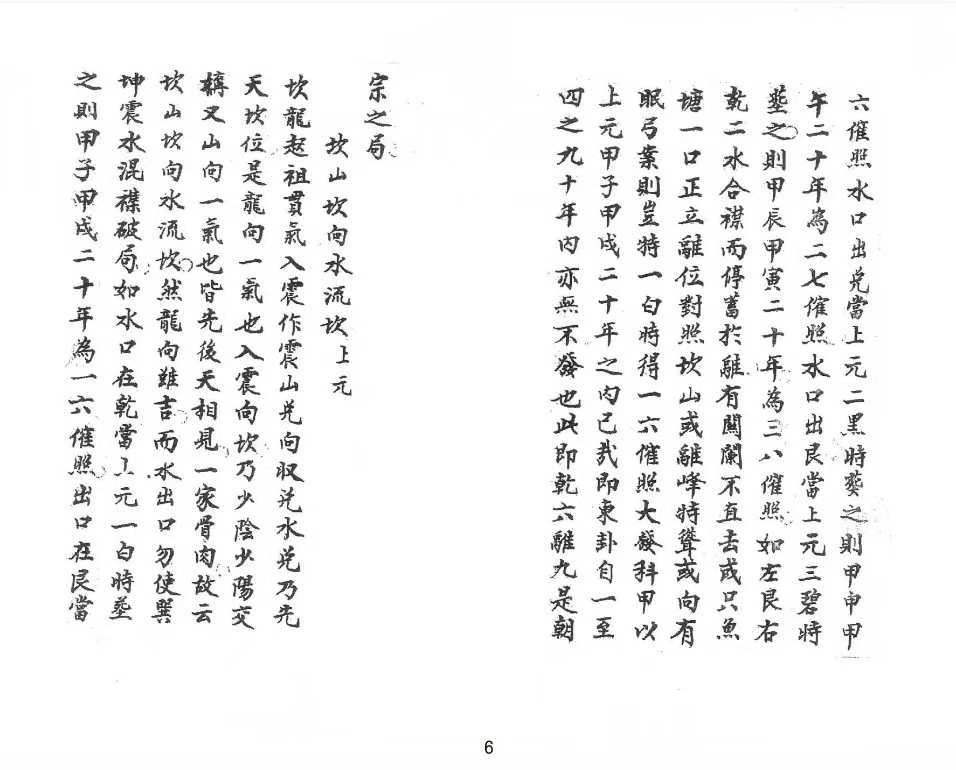 六催照水口出兌當上元二黑時葬之則甲申甲
午二十年為二七催照水口出艮當上元三碧時
葬之則甲辰甲寅二十年為三八催照如左艮右
乾二水合襟而停蓄於離有關闌不直去或只魚
塘一口正立離位對照坎山或離峰特聳或向有
眠弓案則豈特一白時得一六催照大發科甲以
上元甲子甲戌二十年之內已哉即東卦自一至
四之九十年內亦無不發也此即乾六離九是朝
宗之局
坎山坎向水流坎上元
坎龍起祖貫氣入震作震山兌向収兌水兌乃先
天坎位是龍向一氣也入震向坎乃少陰少陽交
媾又山向一氣也皆先後天相見一家骨肉故云
坎山坎向水流坎然龍向雖吉而水出口勿使巽
坤震水混襟破局如水口在乾當上元一白時葬
之則甲子甲戌二十年為一六催照出口在艮當
6